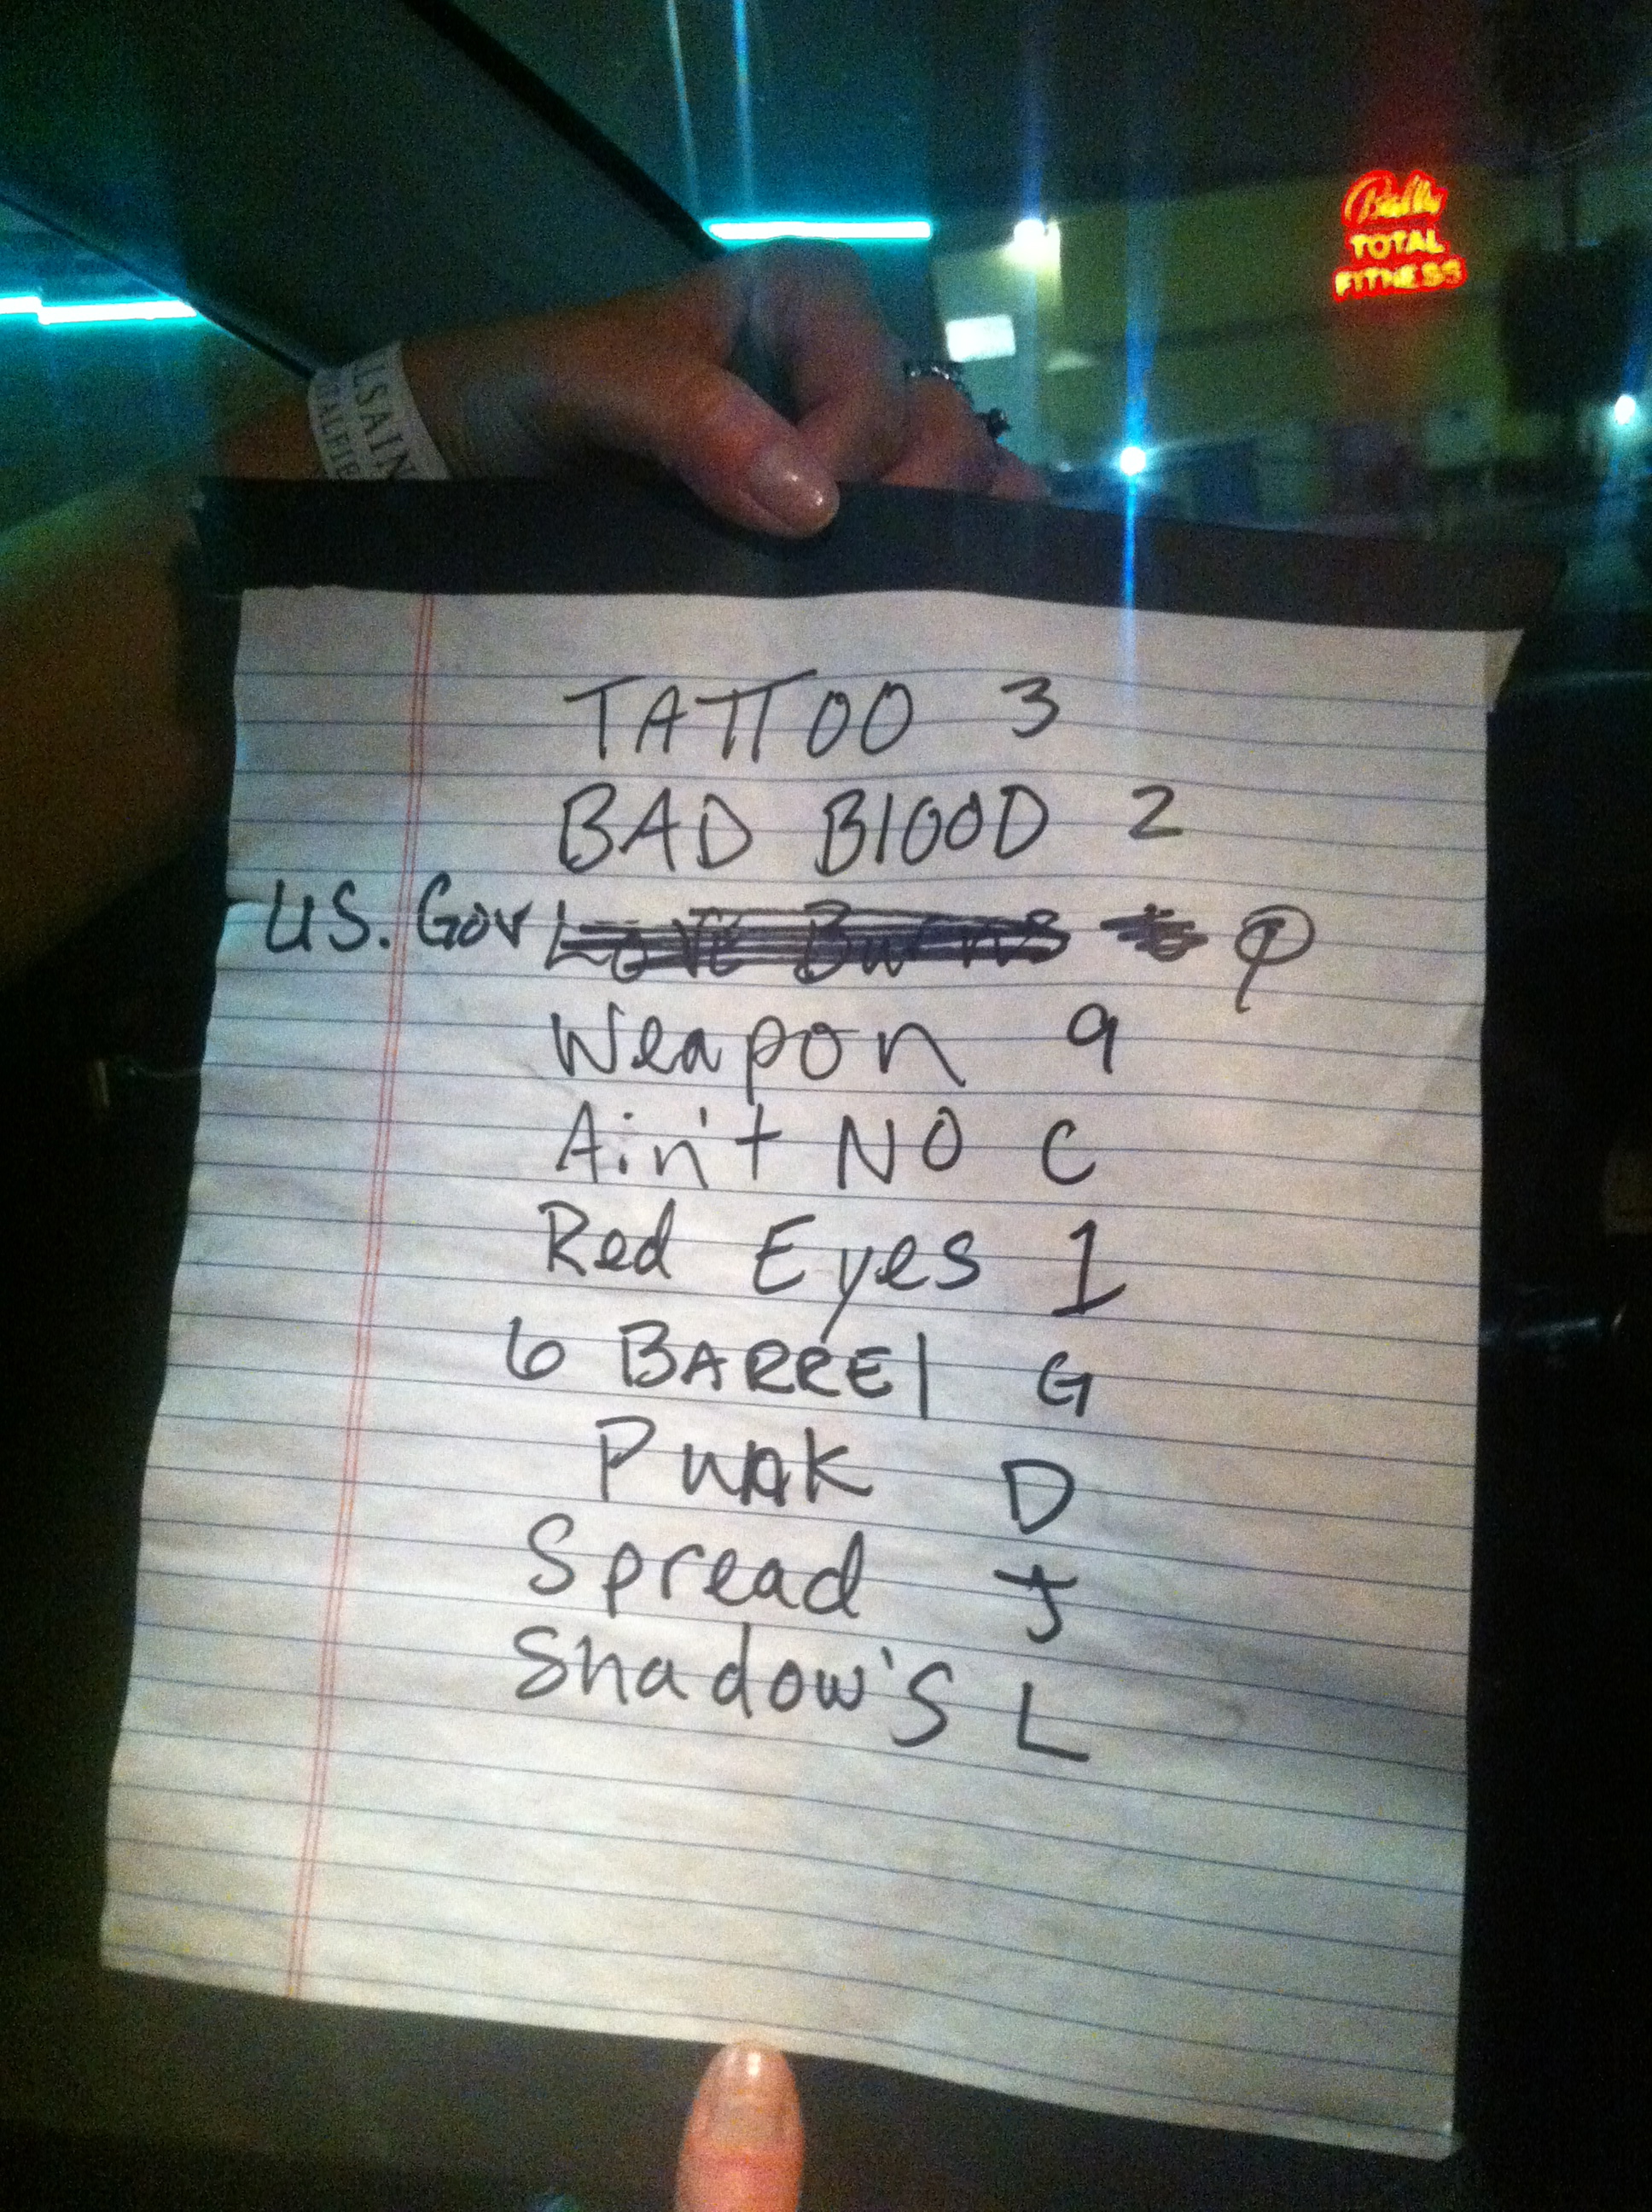 Bally
TOTAL
FITNESS
LSAIN
TALFIE
TATTOO 3
BAD BlOOD 2
US. Gov Love Burns
Weapon 9
Ain't NO C
Red Eyes 1
6 BARREl G
Punk D
Spread J
Shadow'S L